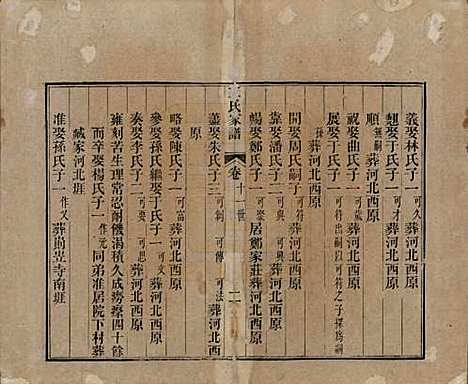 義娶林氏子一可久葬河北西原
魁娶于氏子一可才葬河北西原
順無嗣葬河北西原
觀娶曲氏子一可成葬河北西原
展娶于氏子一可符出嗣以可符之子探為嗣
孫葬河北西原
開娶周氏嗣子一可符葬河北西原
靠娶潘氏子二可興 可與葬河北西原
暢娶鄭氏子一可崇居鄭家莊葬河北西原
王氏家譜
卷十一世
二
蓋娶朱氏子三可制 可傳 可法葬河北西
原
略娶陳氏子一可富葬河北西原
參娶孫氏繼娶于氏子一可文葬河北西原
奏娶李氏子二可要 可思葬河北西原
雍刻苦生理常忍耐機湯積久成癆瘵四十餘
而卒娶楊氏子一作元同弟准居院下村葬
臧家河北崖
准娶孫氏子一作又葬尚岦寺南崖